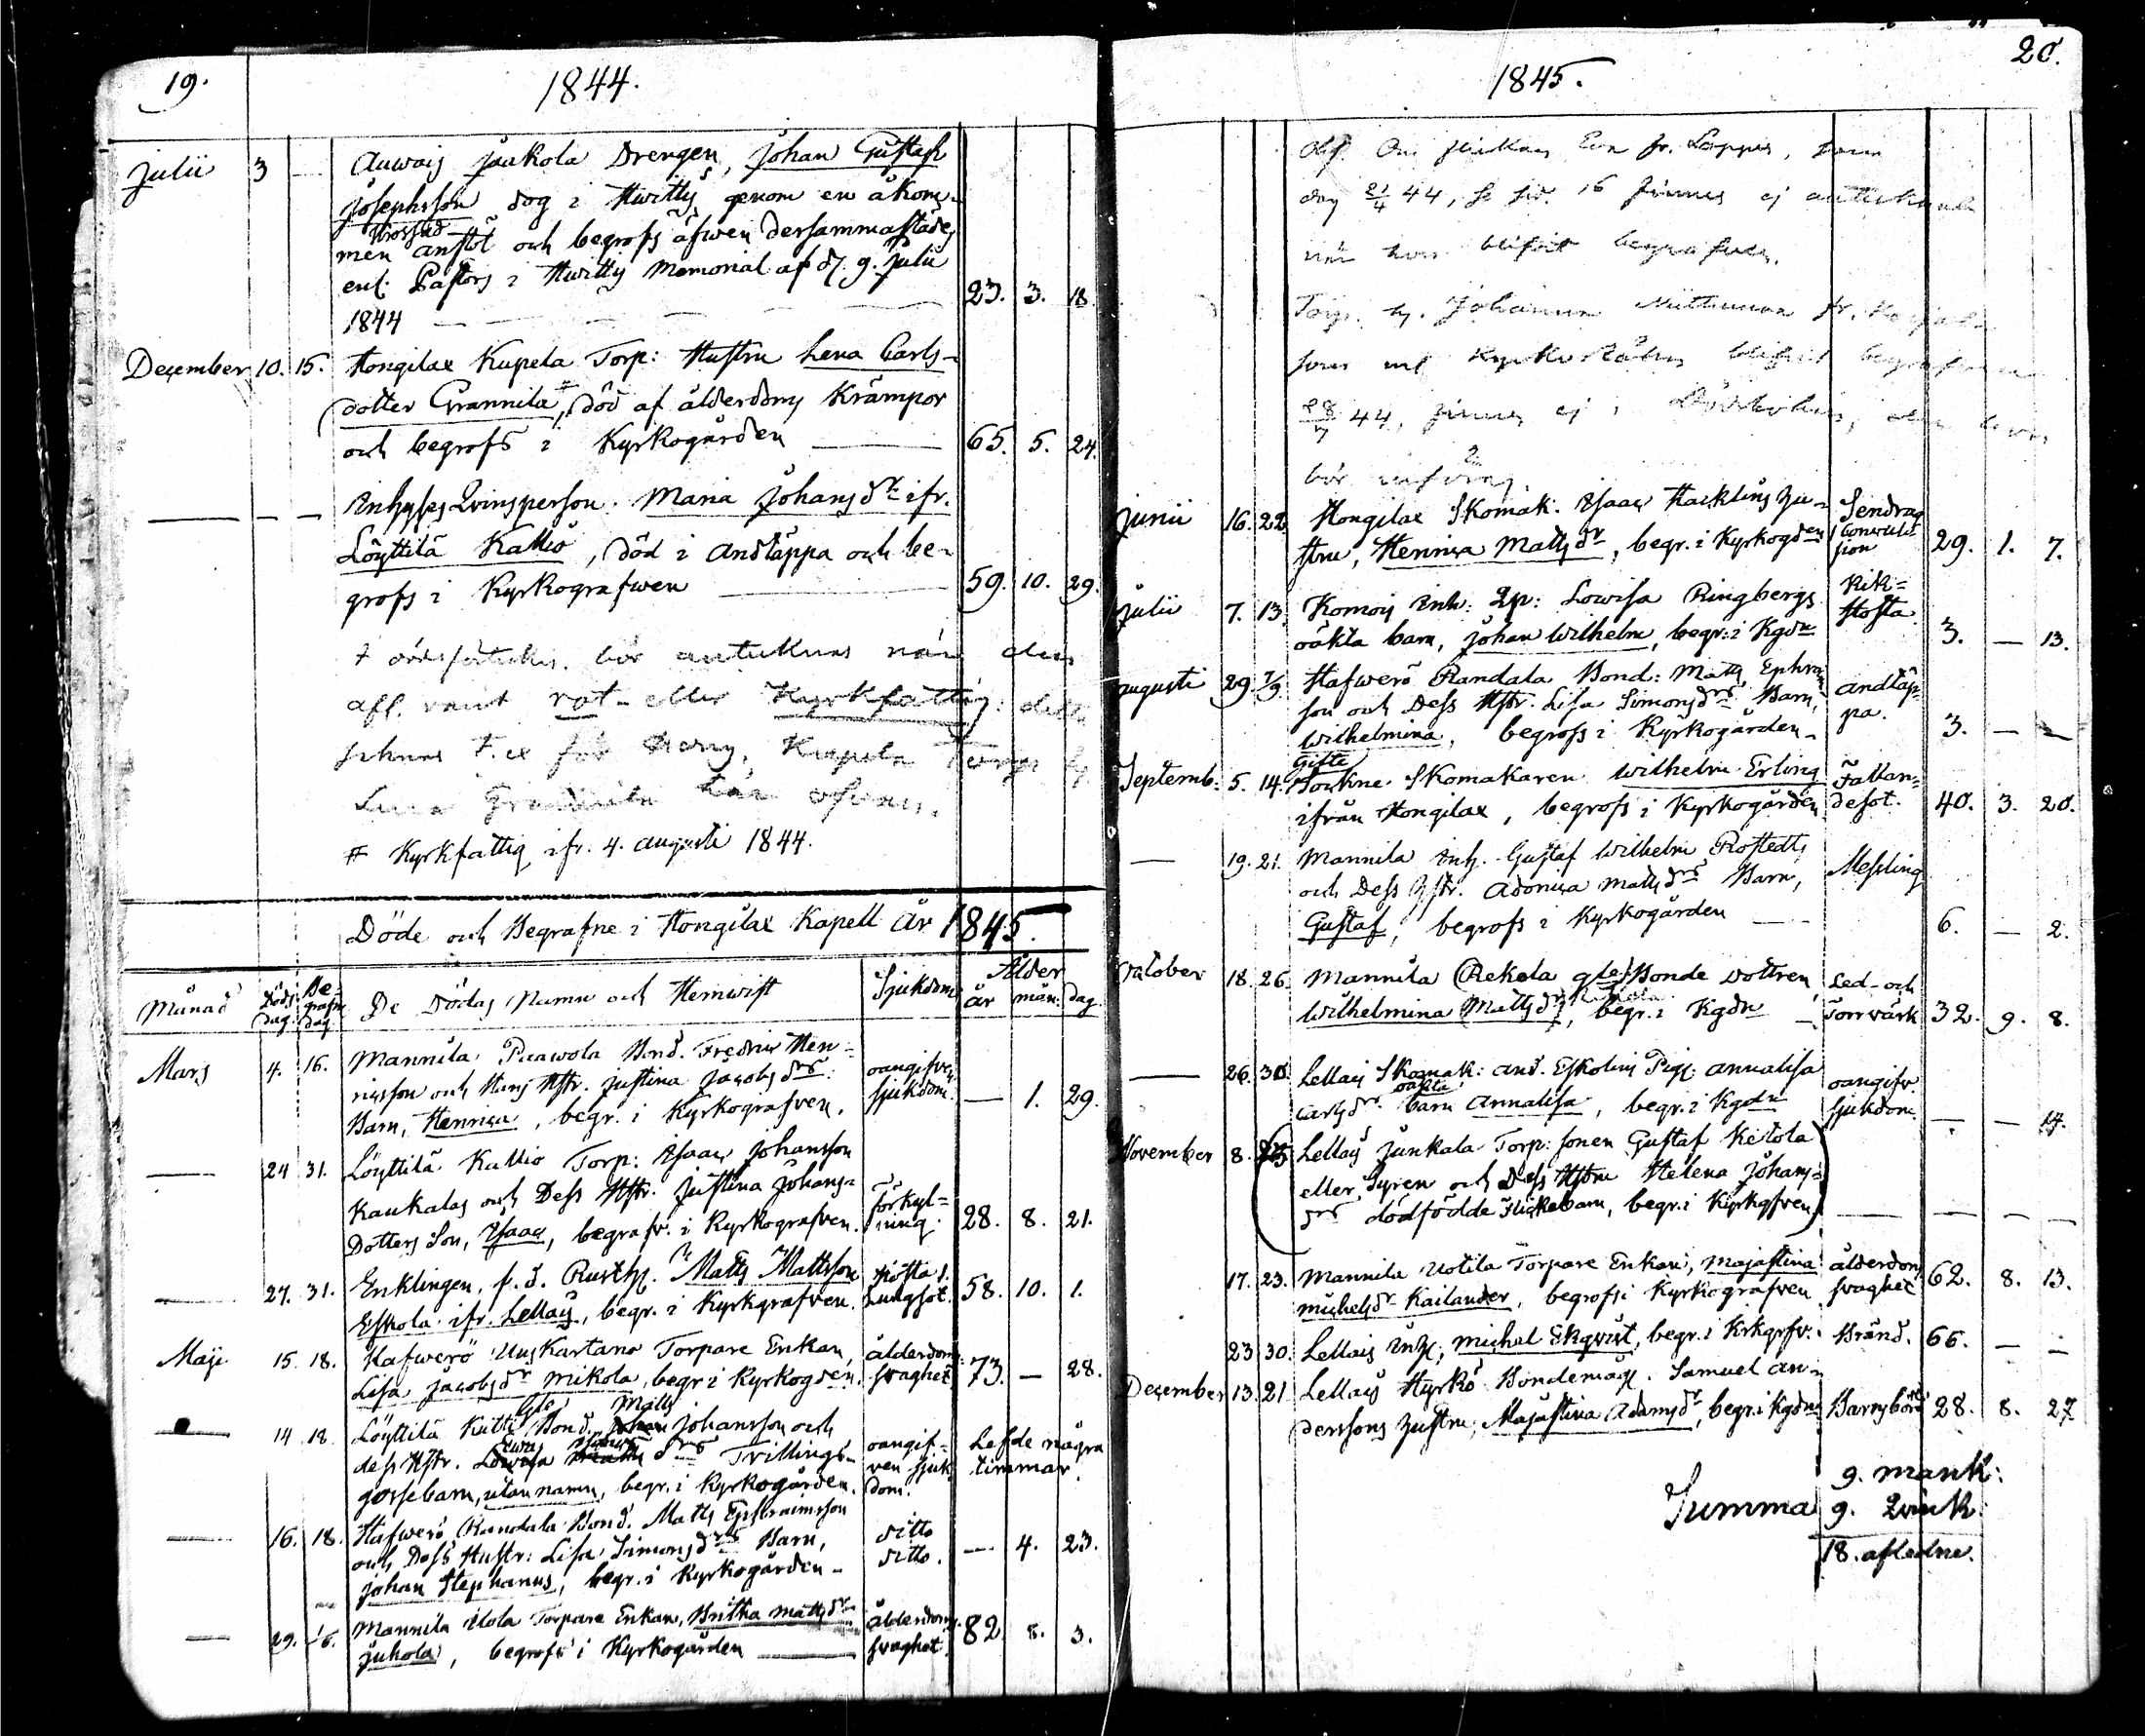 19.
1844.
Julii 3 — Auwais Jaakola Drengen, Johan Gustaf
Josephsson dog i Hwittis genom en åkom-
Trossad
men anstöt och begrofs äfwen dersammastädes
enl. Pastors i Hwittis Memorial af d. 9. Julii
1844 — 23. 3. 18.
December 10. 15. Hongilax Kupela Torp: Hustru Lena Carls-
dotter Grannila #, död af ålderdoms Krämpor
och begrofs i Kyrkogården — 65. 5. 24.
— — — Inhyses Qvinsperson. Maria Johansdr ifr.
Löyttilä Kallio, död i Andtäppa och be-
grofs i Kyrkografwen — 59. 10. 29.
bör antecknas när den
afl. varit rot- eller Kyrkfattig:
Kupela Torps
Lena Grannila här ofvan.
# Kyrkfattig ifr. 4. Augusti 1844.
Döde och Begrafne i Hongilax Kapell År 1845.
Månad Döds dag Be- grafn. dag De Dödas Namn och Hemwist Sjukdom Ålder år mån. dag
Mars 4. 16. Mannila Paawola Bond. Fredric Hen-
ricsson och Hans Hstr. Justina Jacobsdrs oangifven
Barn, Henrica, begr. i Kyrkografven. sjukdom. — 1. 29.
— 24 31. Löyttilä Kallio Torp: Isaac Johansson
Kaukalas och Dess Hstr. Justina Johans- förkyl-
Dotters Son, Isaac, begrafv. i Kyrkografven. ning. 28. 8. 21.
— 27. 31. Enklingen, f. d. Rusth. Matts Mattsson Hosta l.
Eskola ifr. Lellais, begr. i Kyrkgrafven. lungsot. 58. 10. 1.
Maji 15. 18. Hafwerö Uus Kartano Torpare Enkan, ålderdoms
Lisa Jacobsdr Mikola, begr i Kyrkogden. svaghet 73. — 28.
Matts
— 14 18 Löyttilä Kutti Bond. Johan Johansson och
dess Hstr. Lowisa drs Trillings- oangif- Lefde några
gossebarn, utan namn, begr. i Kyrkogården. ven sjuk- dom. timmar.
— 16. 18. Hafwerö Randala Bond. Matts Ephraimsson ditto
och Dess Hustr: Lisa Simonsdrs Barn, ditto. — 4. 23.
Johan Stephanus, begr. i Kyrkogården -
— 29. Mannila Uola Torpare Enkan, Britha Mattsdr ålderdoms
Jukola, begrofs i Kyrkogården — svaghet. 82. 8. 3.
20.
1845.
Om flickan Eva fr. Lappis, som
dog 21/4 44, se sid. 16 finnes ej antecknadt
när hon blifvit begrafven.
Torp. h. Johanna
som enl Kyrkoräkn blifvit begrafven
44, finnes ej i
bör införas.
Junii 16. 22 Hongilax Skomak. Isaac Hacklins Hu- Sendrag
stru, Henrica Mattsdr, begr. i Kyrkogden Convulsion 29. 1. 7.
Julii 7. 13. Komois Inh: Qp: Lowisa Ringbergs Kik-
oäkta barn, Johan Wilhelm, begr: i Kgdn hosta. 3. — 13.
Augusti 29 7/9 Hafwerö Randala Bond: Matts Ephraim-
son och Dess Hstr. Lisa Simonsdrs Barn, Andtäp-
Wilhelmina, begrofs i Kyrkogården - pa. 3. — —
Gifte
Septemb: 5. 14. Sockne Skomakaren Wilhelm Erling Fallan-
ifrån Hongilax, begrofs i Kyrkogården desot. 40. 3. 20.
— 19. 21. Mannila Inh. Gustaf Wilhelm Rostedts
och Dess Hstr. Adonica Mattsdrs Barn, Messling
Gustaf, begrofs i Kyrkogården — 6. — 2.
October 18. 26. Mannila Rekola gle Bonde Dottren Led- och
Wilhelmina Mattsdr, begr. i Kgdn — Torrwärk 32. 9. 8.
— 26. 30. Lellais Skomak: And. Eskolins Pig: Annalisa oangifv.
oäkta
Carlsdrs barn Annalisa, begr. i Kgdn sjukdom — — 14.
November 8. Lellais Junkala Torp: sonen Gustaf Ketola
eller Syren och Dess Hstru Helena Johans-
drs dödfödde Flickebarn, begr. i Kyrkgfven — — — —
17. 23. Mannila Uotila Torpare Enkan, Majastina ålderdoms
Michelsdr Kailander, begrofs i Kyrkografven svaghet 62. 8. 13.
23 30. Lellais Inh; Michel Ekqvist, begr. i Krkgrfv. Bränd. 66. — —
December 13. 21 Lellais Hyrkö Bondemåg. Samuel An-
derssons Hustru, Majastina Adamsdr, begr. i Kgdn Barnsbörd 28. 8. 27
9. mank:
Summa 9. Qvink:
18. aflednе.